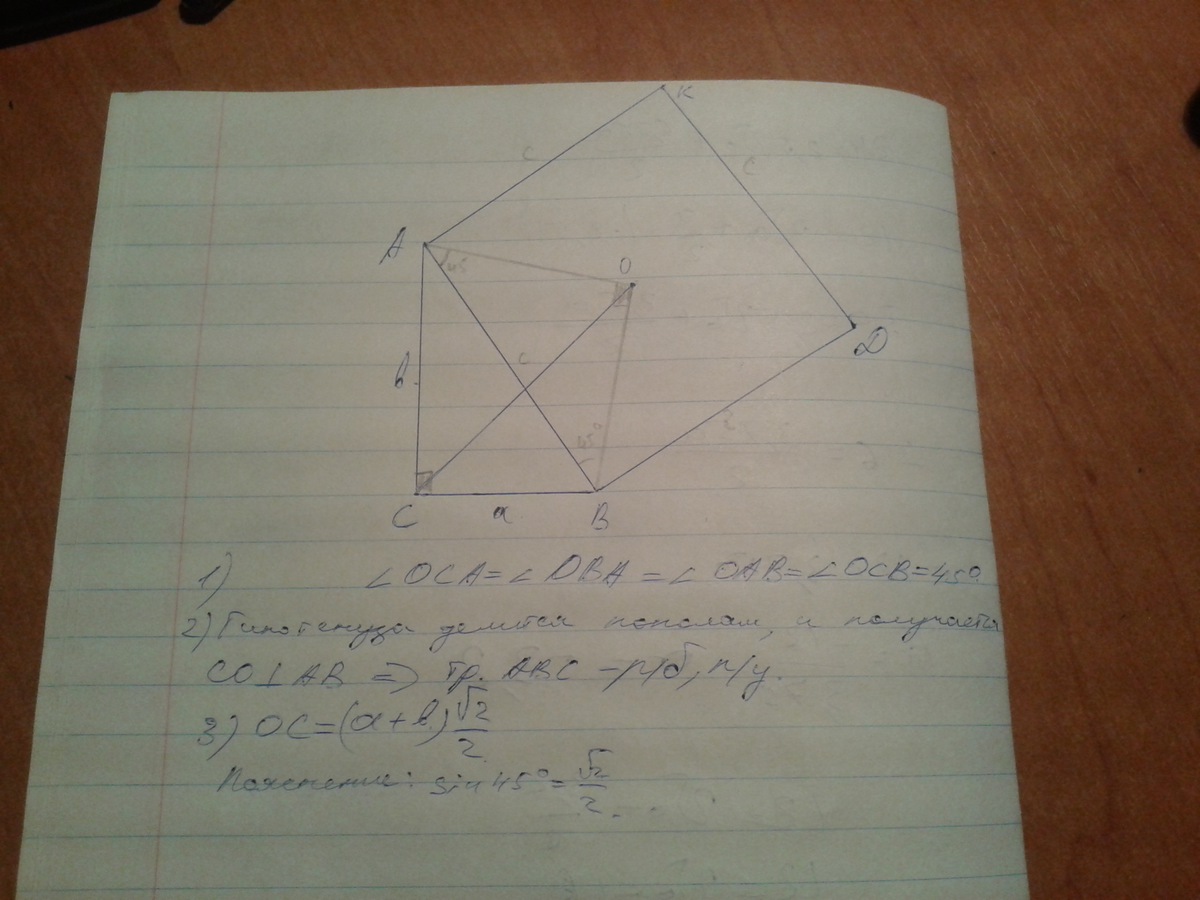 K
C
C
A
45
O
C
в
D
45°
C
C
a
B
1) ∠OCA=∠DBA=∠OAB=∠OCB=45°.
2) Гипотенуза делится пополам, и получается
CO⊥AB => тр. ABC - р/б, п/у.
3) OC=(a+b)√2/2
Пояснение: sin 45°=√2/2.